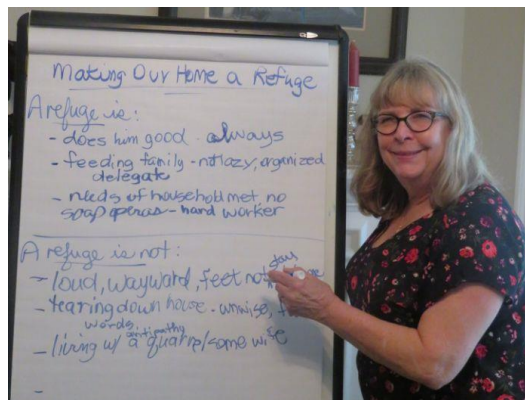 Making Our Home a Refuge
A refuge is:
- does him good - always
- feeding family - not lazy, organized
delegate
- needs of household met no
soap operas - hard worker
A refuge is not:
stay
- loud, wayward, feet not
- tearing down house - unwise,
words
- living w/ a quarrelsome wife
-